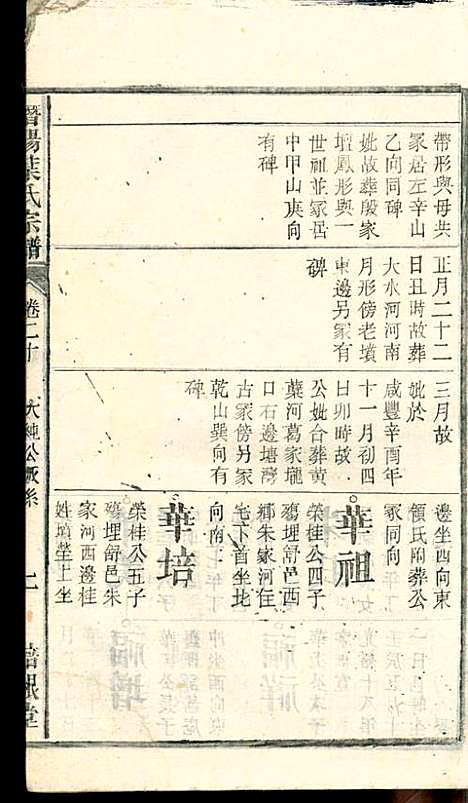 帶形與母共
冢居左辛山
乙向同碑
妣故葬殷家
壇鳳形與一
世祖並冢居
中甲山庚向
有碑
正月二十二
日丑時故葬
大水河河南
月形傍老墳
東邊另冢有
碑
三月故
妣於
咸豐辛酉年
十一月初四
日卯時故
公妣合葬黃
葉河葛家壠
口石邊塘灣
古冢傍另冢
乾山巽向有
碑
邊坐西向東
顧氏附葬公
冢同向
華祖
榮桂公四子
殤埋舒邑西
鄉朱家河住
宅下首坐北
向南
華培
榮桂公五子
殤埋舒邑朱
家河西邊桂
姓墳塋上坐
潛陽葉氏宗譜
卷二十
大純公派系
培根堂